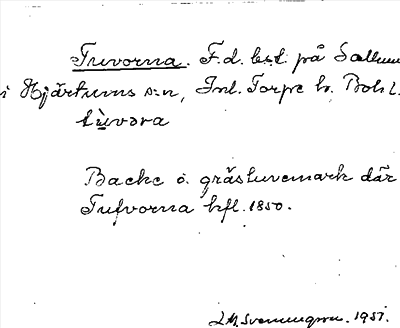 Tuvorna. F.d. bst. på Sällum
i Hjärtums s:n, Inl. Torpe h. Boh. l.
tùvəra
Backe o. gräsluvemark där
Tufvorna hfl. 1850.
J.A. Svenungsson. 1951.